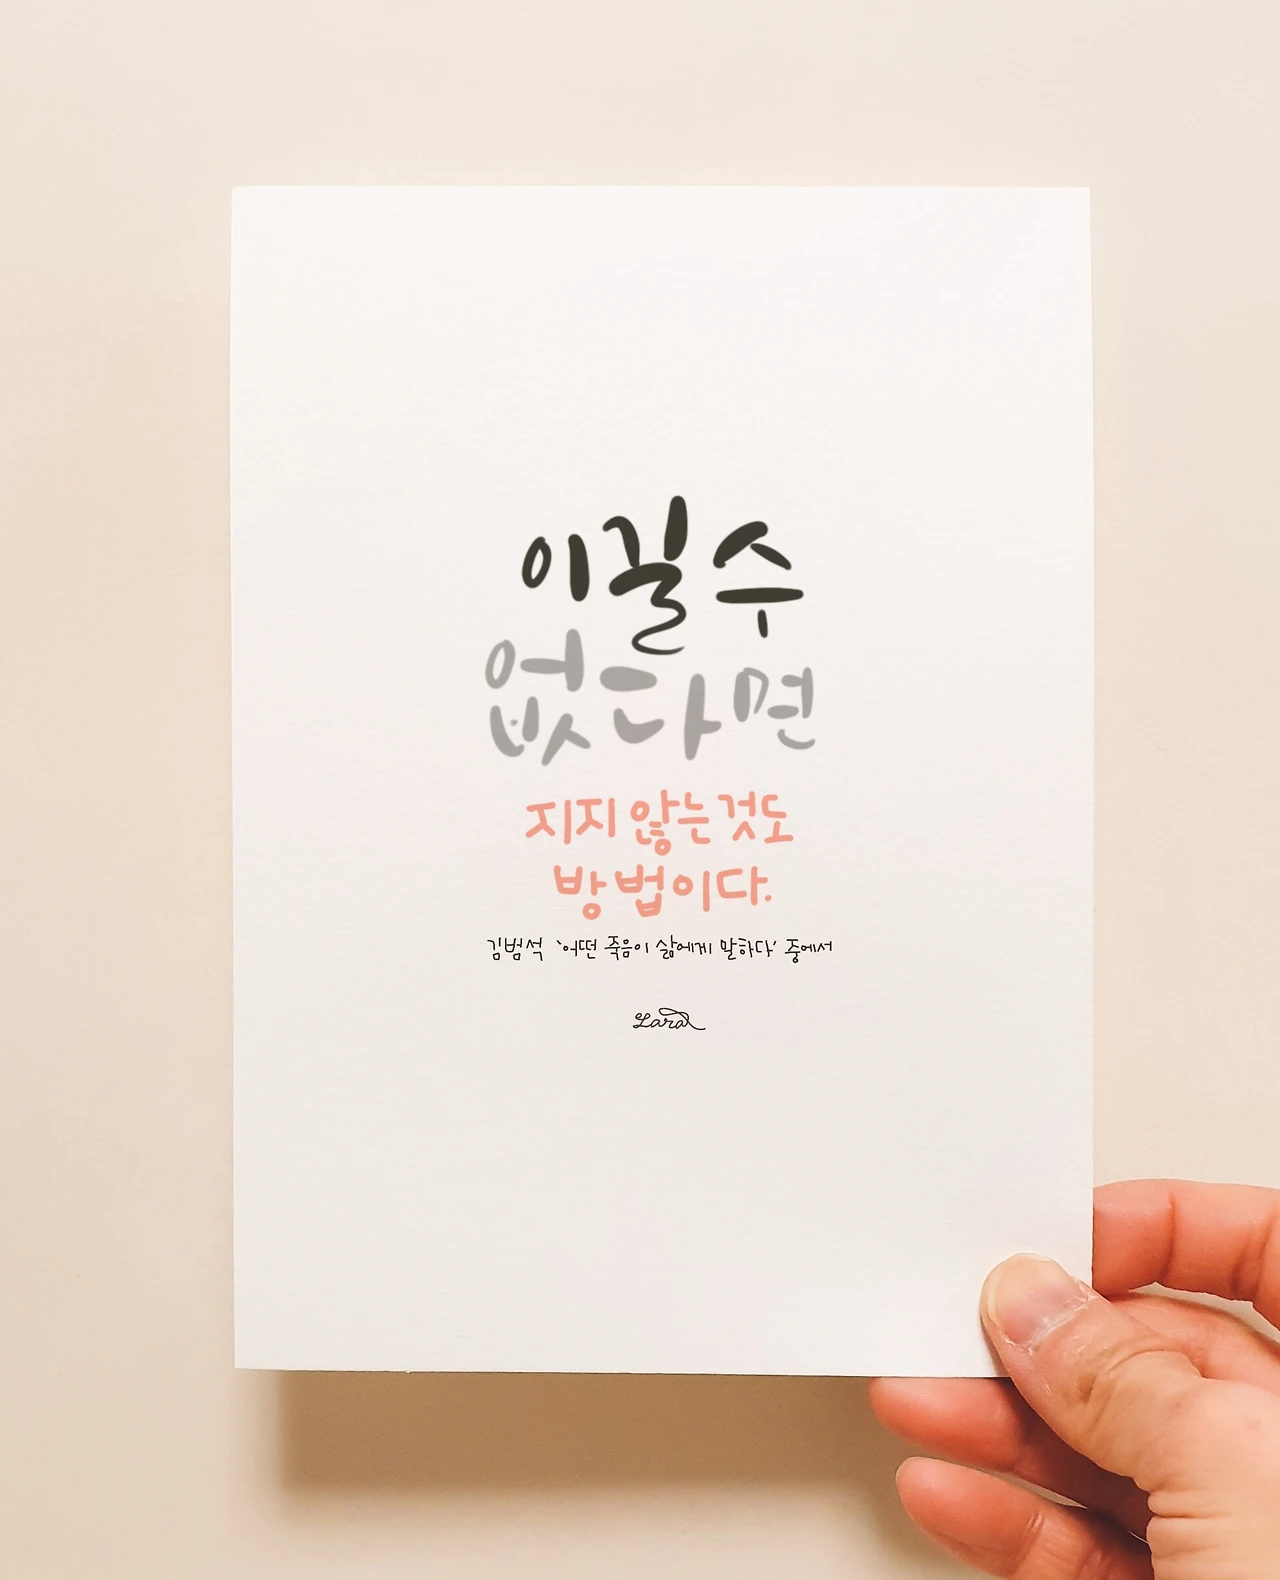 이길 수
없다면
지지 않는 것도
방법이다.
김범석 '어떤 죽음이 삶에게 말하다' 중에서
Lara